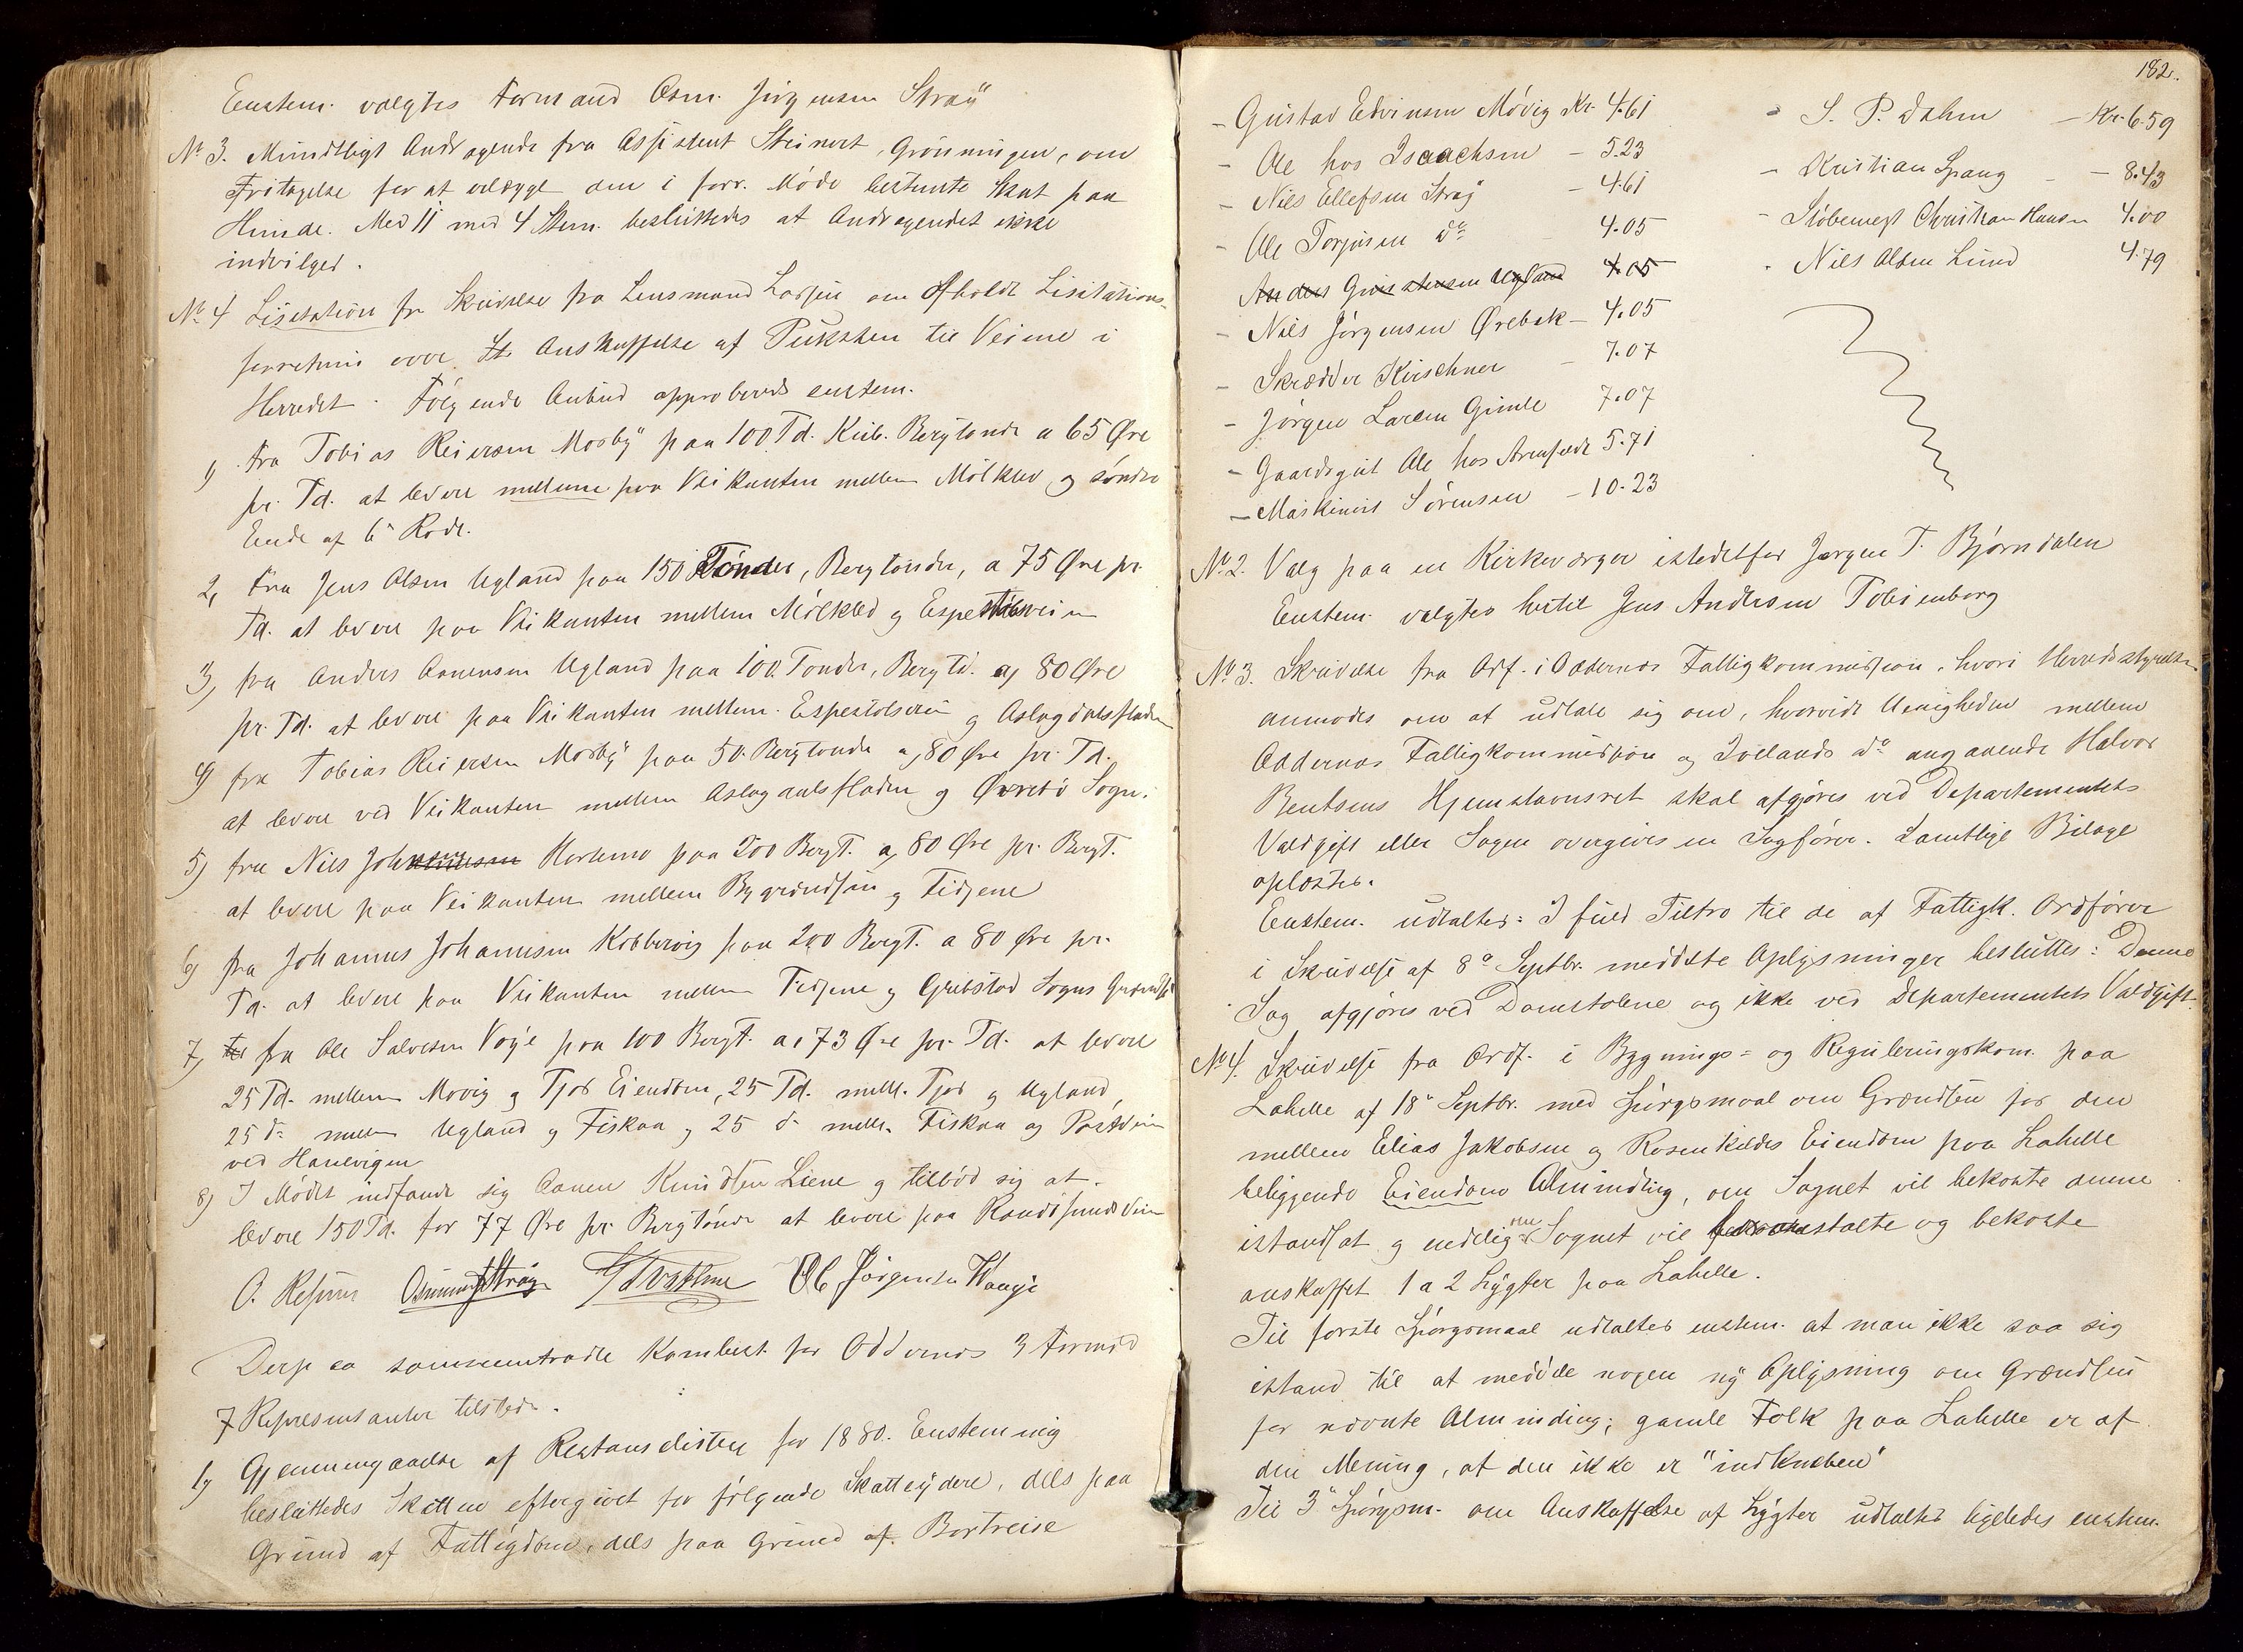 Enstem. valgtes Formand Osm. Jørgensen Straÿ
No 3. Mundtligt Andragende fra Assistent Steinert, Grönningen, om
Fritagelse for at erlægge den i forr. Møde bestemte Skat paa
Hunde. Med 11 mod 4 Stem. besluttedes at Andragendet ikke
indvilges.
No 4 Lisitation fr Skrivelse fra Lensmand Larsen om afholdt Lisitations-
forretning over Anskaffelse af Puksten til Veiene i
Herredet. Følgende Anbud approberes enstem.
1) fra Tobias Reiersen Mosbÿ paa 100 Td. Kub. Bergtönde a 65 Øre
pr. Td. at levere mellem paa Veikanten mellem Mölklev og söndre
Ende af 6te Rode.
2, fra Jens Olsen Ugland paa 150 Tønder, Bergtönder, a 75 Øre pr.
Td. at levere paa Veikanten mellem Mölklev og Espestölsveien
3, fra Anders Aanensen Ugland paa 100 Tønder, Bergtd. a, 80 Øre
pr. Td. at levere paa Veikanten mellem Espestölsveien og Aslagdalsfladen
4) fra Tobias Reiersen Mosbÿ paa 50 Bergtönde a, 80 Øre pr. Td.
at levere ved Veikanten mellem Aslagdalsfladen og Øvrebö Sogn.
5) fra Nils Johnsen Hortemo paa 200 Bergt. a, 80 Øre pr. Bergt.
at levere paa Veikanten mellem Bygrændsen og Tidjene
6) fra Johannes Johannesen Kobbervig paa 200 Bergt. a 80 Øre pr.
Td. at levere paa Veikanten mellem Tidjene og Grebstad Sogns Grændse
7, fra Ole Salvesen Vöÿe paa 100 Bergt. a, 73 Øre pr. Td. at levere
25 Td. mellem Movig og Tjos Eiendom, 25 Td. mell. Tjos og Ugland,
25 do mellem Ugland og Fiskaa og 25 do mell. Fiskaa og Postveien
ved Hanevigen
8) I Mödet indfandt sig Aanen Knudsen Liene og tilböd sig at
levere 150 Td. for 77 Øre pr. Bergtönde at levere paa Randösundsveien
O. Osmund J Straÿ Ole Jörgensen Kaagi
Derpaa sammentraadte Kombest. for Oddernes 3 Formænd
7 Repræsentanter tilstede.
1, Gjennemgaaelse af Restanselisten for 1880. Enstemmig
besluttedes Skatten eftergivet for følgende Skatteÿdere, dels paa
Grund af Fattigdom, dels paa Grund af Bortreise
182.
- Gustav Edvinsen Mövig Kr. 4.61
- Ole hos Isaachsen - 5.23
- Nils Ellefsen Straÿ - 4.61
- Ole Torjusen do - 4.05
Anders Ugland 4.05
- Nils Jörgensen Ørebek - 4.05
- Skrædder Kirschner - 7.07
- Jörgen Larsen Gimle 7.07
- Gaardsgut Ole hos Arenfeldt 5.71
- Maskinist Sörensen - 10.23
- S. P. Dahm - Kr. 6.59
- Kristian Spang - - 8.43
- Støbemest Christian Hansen 4.00
- Nils Olsen Lund 4.79
No 2. Valg paa en Kirkeværge istedetfor Jørgen T. Bjørndalen
Enstem. valgtes hertil Jens Andersen Tobienborg
No 3. Skrivelse fra Ordf. i Oddernes Fattigkommission, hvori Herredsstyrelsen
anmodes om at udtale sig om, hvorvidt Uenigheden mellem
Oddernes Fattigkommission og Ivelands do angaaende Halvor
Bentsens Hjemstavnsret skal afgjøres ved Departementets
Voldgift eller Sagen overgives en Sagfører. Samtlige Bilage
oplæstes.
Enstem. udtaltes: I fuld Tiltro til de af Fattigk. Ordfører
i Skrivelse af 8de Septbr. meddelte Oplysninger besluttes: Denne
Sag afgjøres ved Domstolene og ikke ved Departementets Voldgift.
No 4. Skrivelse fra Ordf. i Bygnings= og Reguleringskom. paa
Lahelle af 18de Septbr. med Spörgsmaal om Grændsen for den
mellem Elias Jakobsen og Rosenkildes Eiendom paa Lahelle
beliggende Eiendom Alminding, om Sognet vil bekoste denne
istandsat og endelig om Sognet vil foranstalte og bekoste
anskaffet 1 a 2 Lÿgter paa Lahelle.
Til første Spörgsmaal udtaltes enstem. at man ikke saa sig
istand til at meddele nogen nÿ Oplÿsning om Grændsen
for nævnte Alminding; gamle Folk paa Lahelle er af
den Mening, at den ikke er "indkneben"
Til 3de Spörgsm. om Anskaffelse af Lÿgter udtaltes ligeledes enstem.